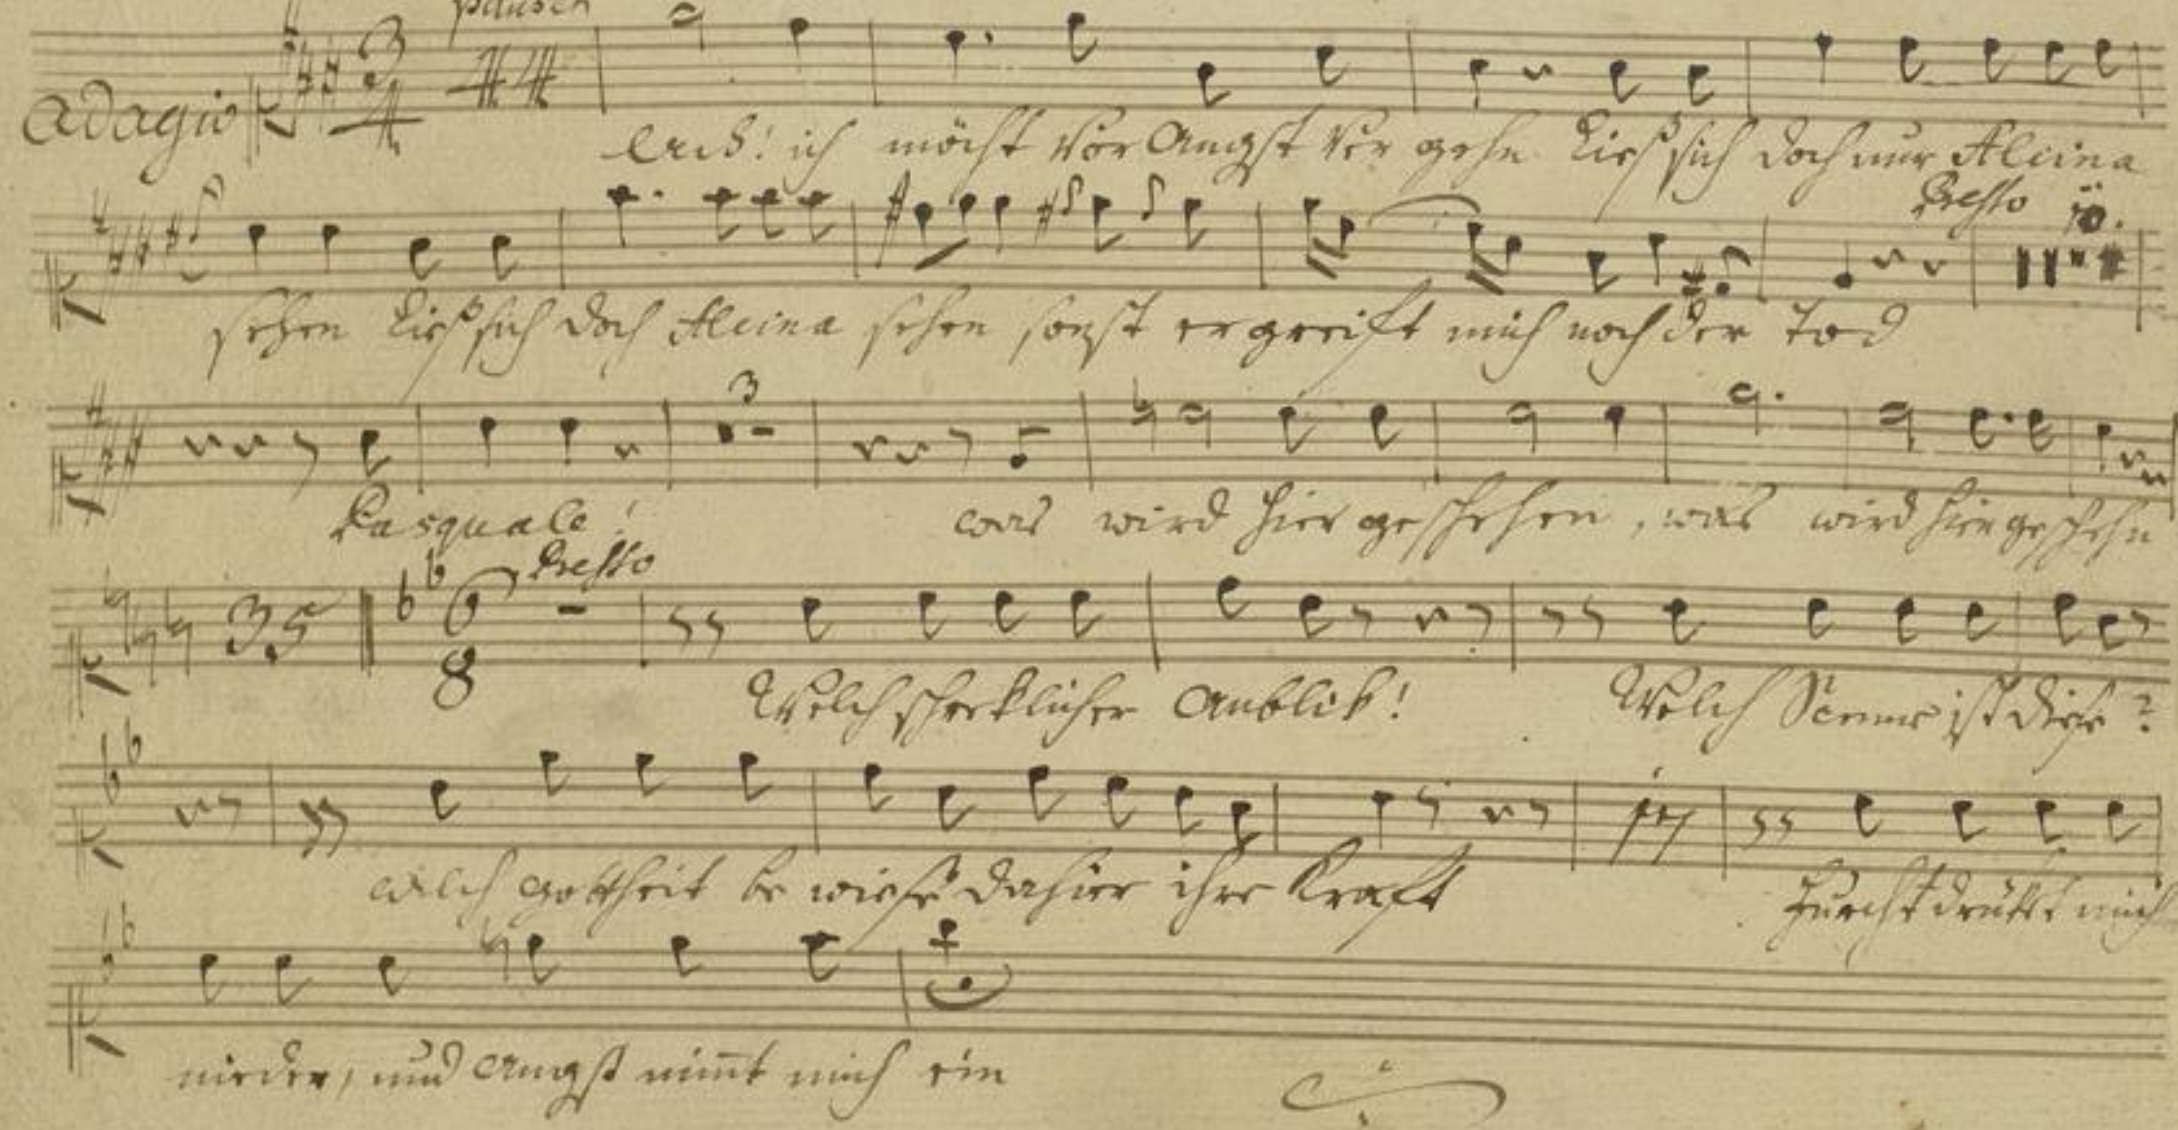 pausen
Adagio 3/4 44
Ach! ich möcht vor Angst vergehn ließ sich doch nur Alcina
Presto 10.
sehen ließ sich doch Alcina sehen sonst ergreift mich noch der Tod
3
Pasquale! was wird hier geschehen, was wird hier geschehn
35 6/8 Presto
Welch schreklicher Anblik! Welch Scene ist diese?
welch Gottheit bewiese dahier ihre Kraft Furcht drükt mich
nieder, und Angst nim̅t mich ein